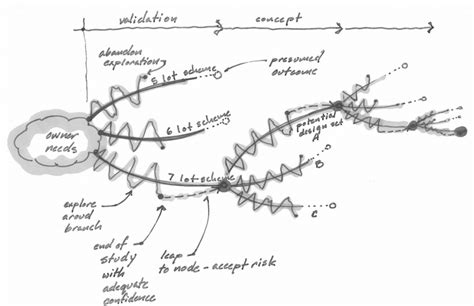 validation
concept
abandon
exploration
5 lot scheme
presumed
outcome
owner
needs
6 lot scheme
7 lot scheme
potential
design set
A
B
C
explore
aroud
branch
end of
study
with
adequate
confidence
leap
to node - accept risk